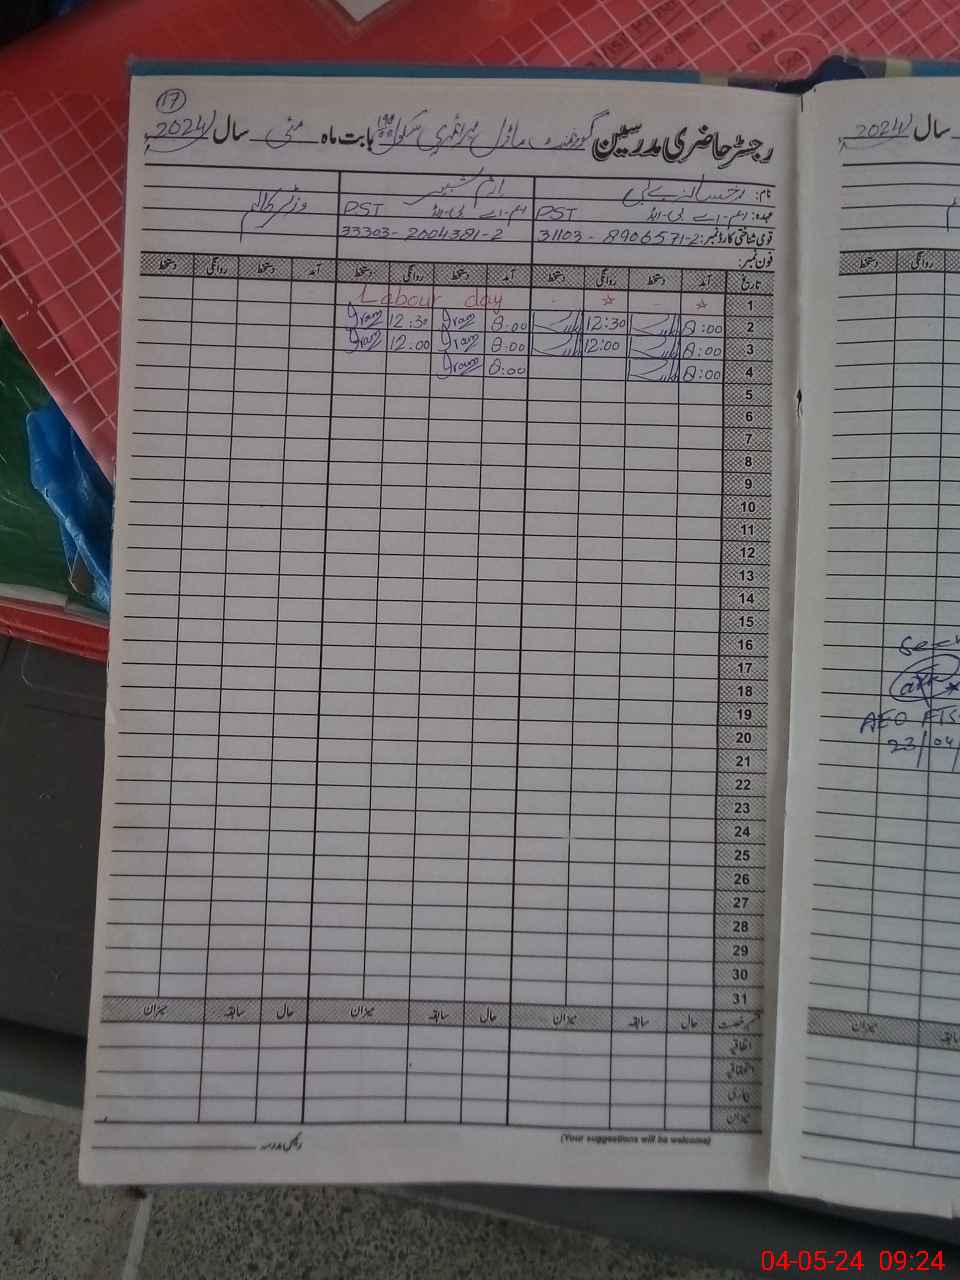 17
رجسٹر حاضری مدرسین گورنمنٹ ماڈل پرائمری سکول بابت ماہ مئی سال 2024
نام: ارم شبیر وزٹر کالم
عہدہ: ایم-اے بی-ایڈ PST ایم-اے بی-ایڈ PST
قومی شناختی کارڈ نمبر: 31103-8906571-2 33303-2004381-2
فون نمبر:
تاریخ آمد دستخط روانگی دستخط آمد دستخط روانگی دستخط آمد دستخط روانگی دستخط
1 Labour day
2 8:00 12:30 8:00 Iram 12:30 Iram
3 8:00 12:00 8:00 Iram 12:00 Iram
4 8:00 8:00 Iram
5
6
7
8
9
10
11
12
13
14
15
16
17
18
19
20
21
22
23
24
25
26
27
28
29
30
31
قسم رخصت حال سابقہ میزان حال سابقہ میزان حال سابقہ میزان
اتفاقیہ
استحقاقیہ
بیماری
میزان
(Your suggestions will be welcome)
رئیس مدرسہ
سال 2024
دستخط روانگی
AEO
23/04/
میزان
04-05-24 09:24